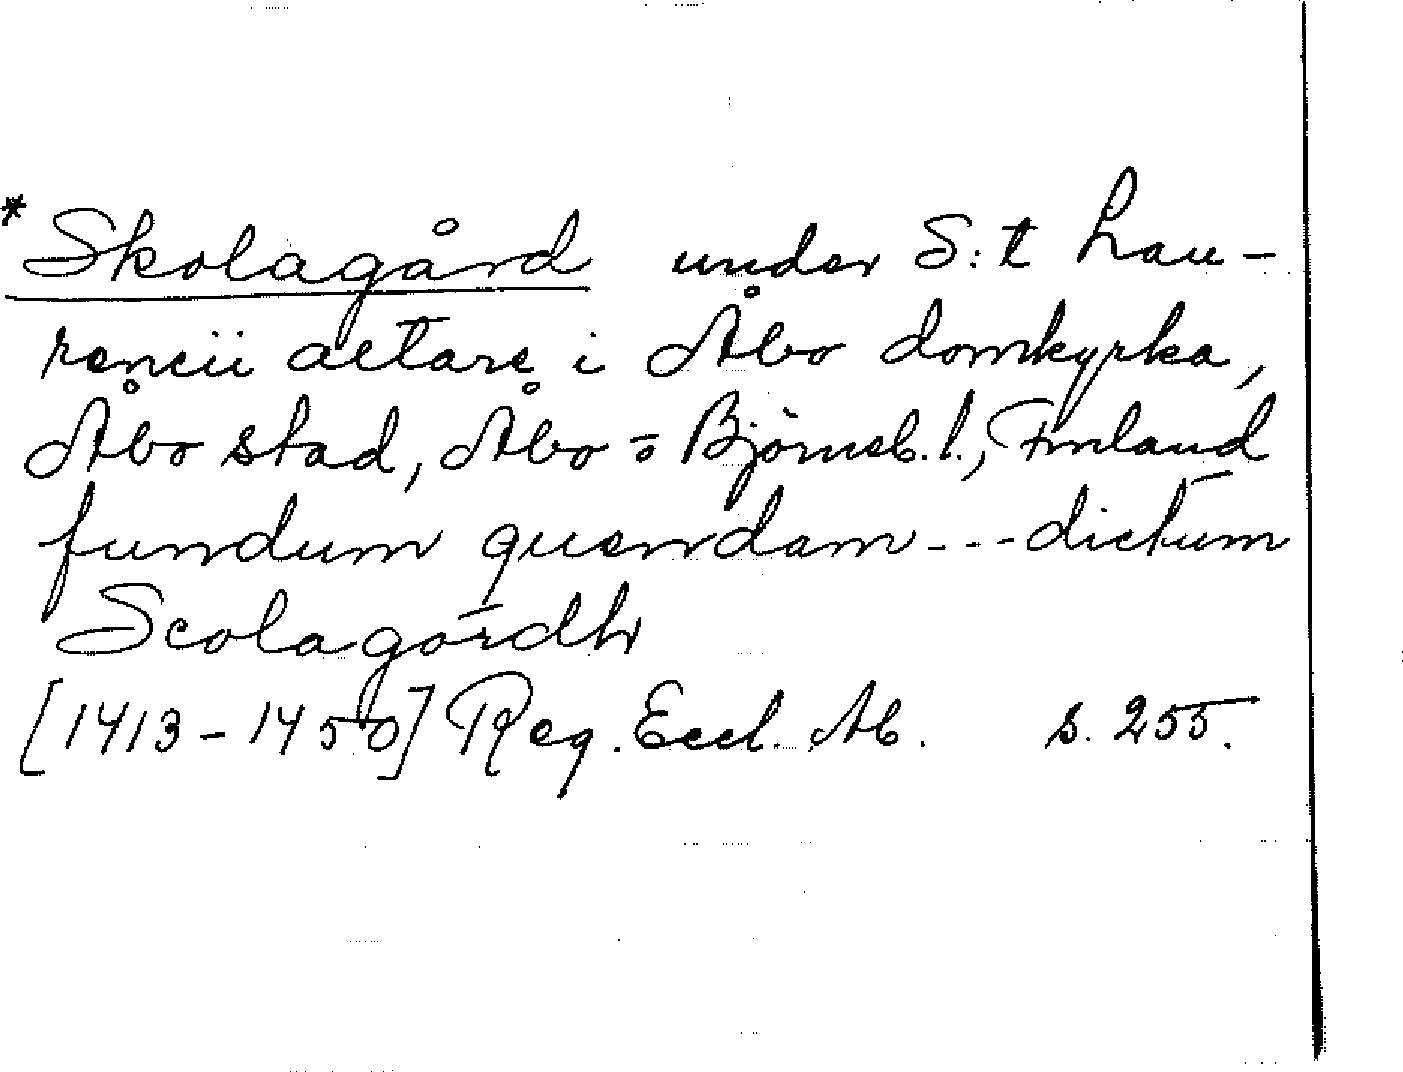 *Skolagård under S:t Lau-
rencii altare i Åbo domkyrka,
Åbo stad, Åbo = Björneb. l., Finland
fundum quendam --- dictum
Scolagórdh
[1413-1450] Reg. Eccl. Ab. s. 255.